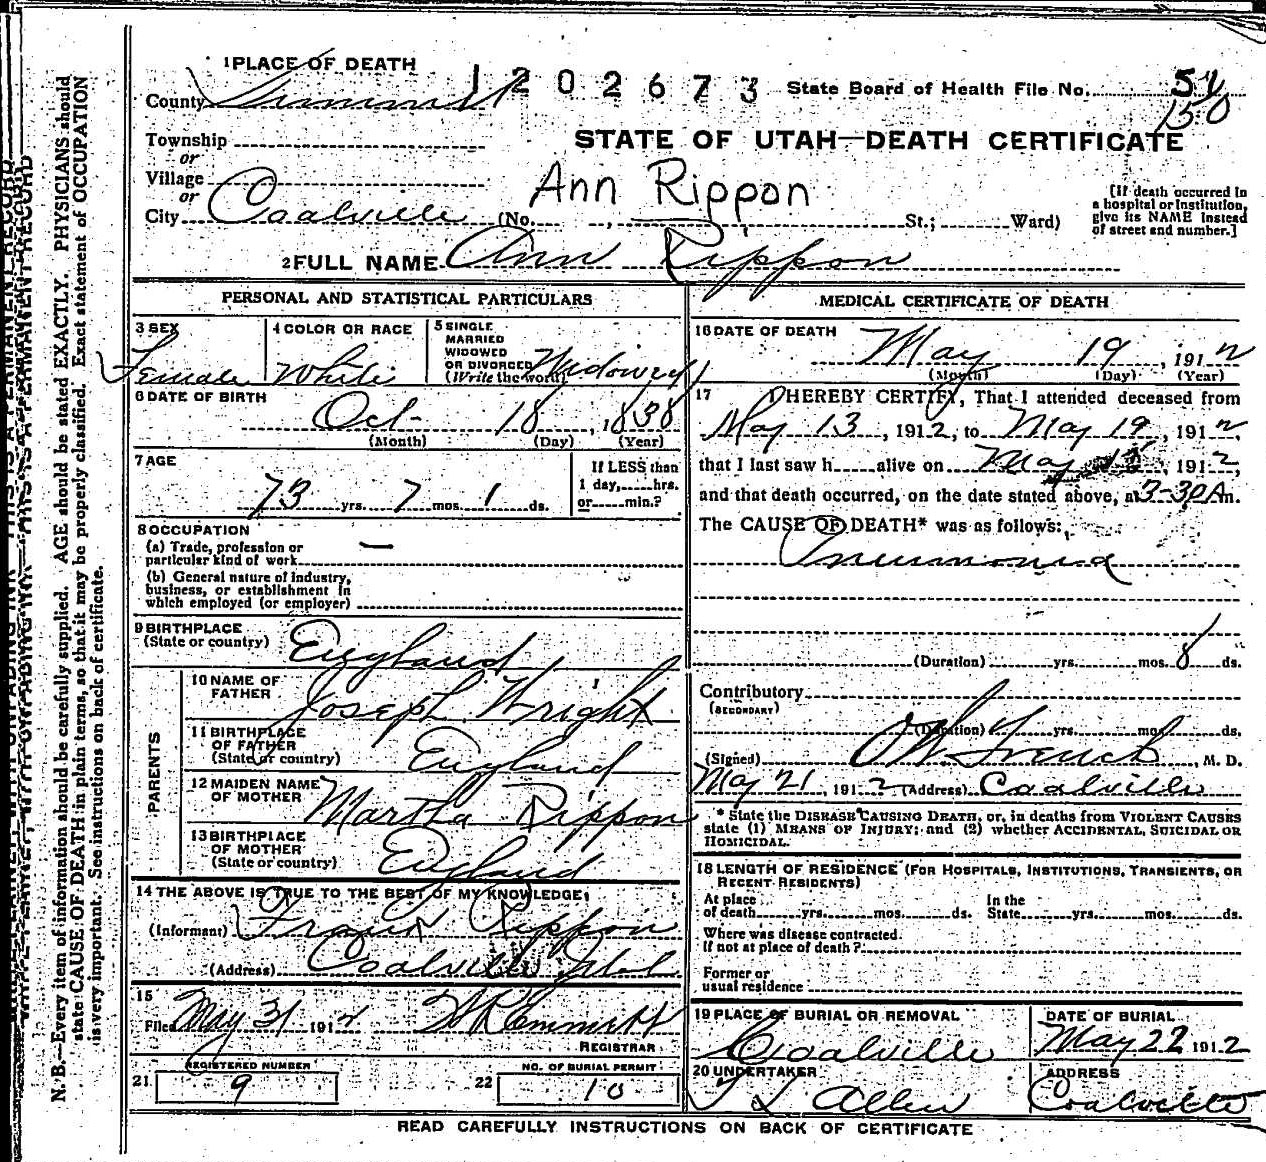 1 PLACE OF DEATH
1202673
State Board of Health File No. 54
150
County Summit
STATE OF UTAH—DEATH CERTIFICATE
Township
or
Village
or
City Coalville (No. , St.; Ward)
Ann Rippon
[If death occurred in
a hospital or institution,
give its NAME instead
of street and number.]
2 FULL NAME Ann Rippon
PERSONAL AND STATISTICAL PARTICULARS
3 SEX
Female
4 COLOR OR RACE
White
5 SINGLE
MARRIED
WIDOWED
OR DIVORCED
(Write the word) Widowed
6 DATE OF BIRTH
Oct 18, 1838
(Month) (Day) (Year)
7 AGE
73 yrs. 7 mos. 1 ds.
If LESS than
1 day, hrs.
or min.?
8 OCCUPATION
(a) Trade, profession or
particular kind of work —
(b) General nature of industry,
business, or establishment in
which employed (or employer)
9 BIRTHPLACE
(State or country) England
PARENTS
10 NAME OF
FATHER Joseph Wright
11 BIRTHPLACE
OF FATHER
(State or country) England
12 MAIDEN NAME
OF MOTHER Martha Rippon
13 BIRTHPLACE
OF MOTHER
(State or country) England
14 THE ABOVE IS TRUE TO THE BEST OF MY KNOWLEDGE
(Informant) Frank Rippon
(Address) Coalville Utah
15
Filed May 31 1912 W R Emmett
REGISTRAR
21 REGISTERED NUMBER
9
22 NO. OF BURIAL PERMIT
10
MEDICAL CERTIFICATE OF DEATH
16 DATE OF DEATH
May 19, 1912
(Month) (Day) (Year)
17 I HEREBY CERTIFY, That I attended deceased from
May 13, 1912, to May 19, 1912,
that I last saw h alive on May 18, 1912,
and that death occurred, on the date stated above, at 3-30 A m.
The CAUSE OF DEATH* was as follows:
Pneumonia
(Duration) yrs. mos. 8 ds.
Contributory
(SECONDARY)
(Duration) yrs. mos. ds.
(Signed) French, M. D.
May 21, 1912 (Address) Coalville
* State the DISEASE CAUSING DEATH, or, in deaths from VIOLENT CAUSES
state (1) MEANS OF INJURY; and (2) whether ACCIDENTAL, SUICIDAL OR
HOMICIDAL.
18 LENGTH OF RESIDENCE (FOR HOSPITALS, INSTITUTIONS, TRANSIENTS, OR
RECENT RESIDENTS)
At place
of death yrs. mos. ds.
In the
State yrs. mos. ds.
Where was disease contracted
if not at place of death?
Former or
usual residence
19 PLACE OF BURIAL OR REMOVAL
Coalville
DATE OF BURIAL
May 22 1912
20 UNDERTAKER
T L Allen
ADDRESS
Coalville
READ CAREFULLY INSTRUCTIONS ON BACK OF CERTIFICATE
N. B.—Every item of information should be carefully supplied. AGE should be stated EXACTLY. PHYSICIANS should
state CAUSE OF DEATH in plain terms, so that it may be properly classified. Exact statement of OCCUPATION
is very important. See instructions on back of certificate.